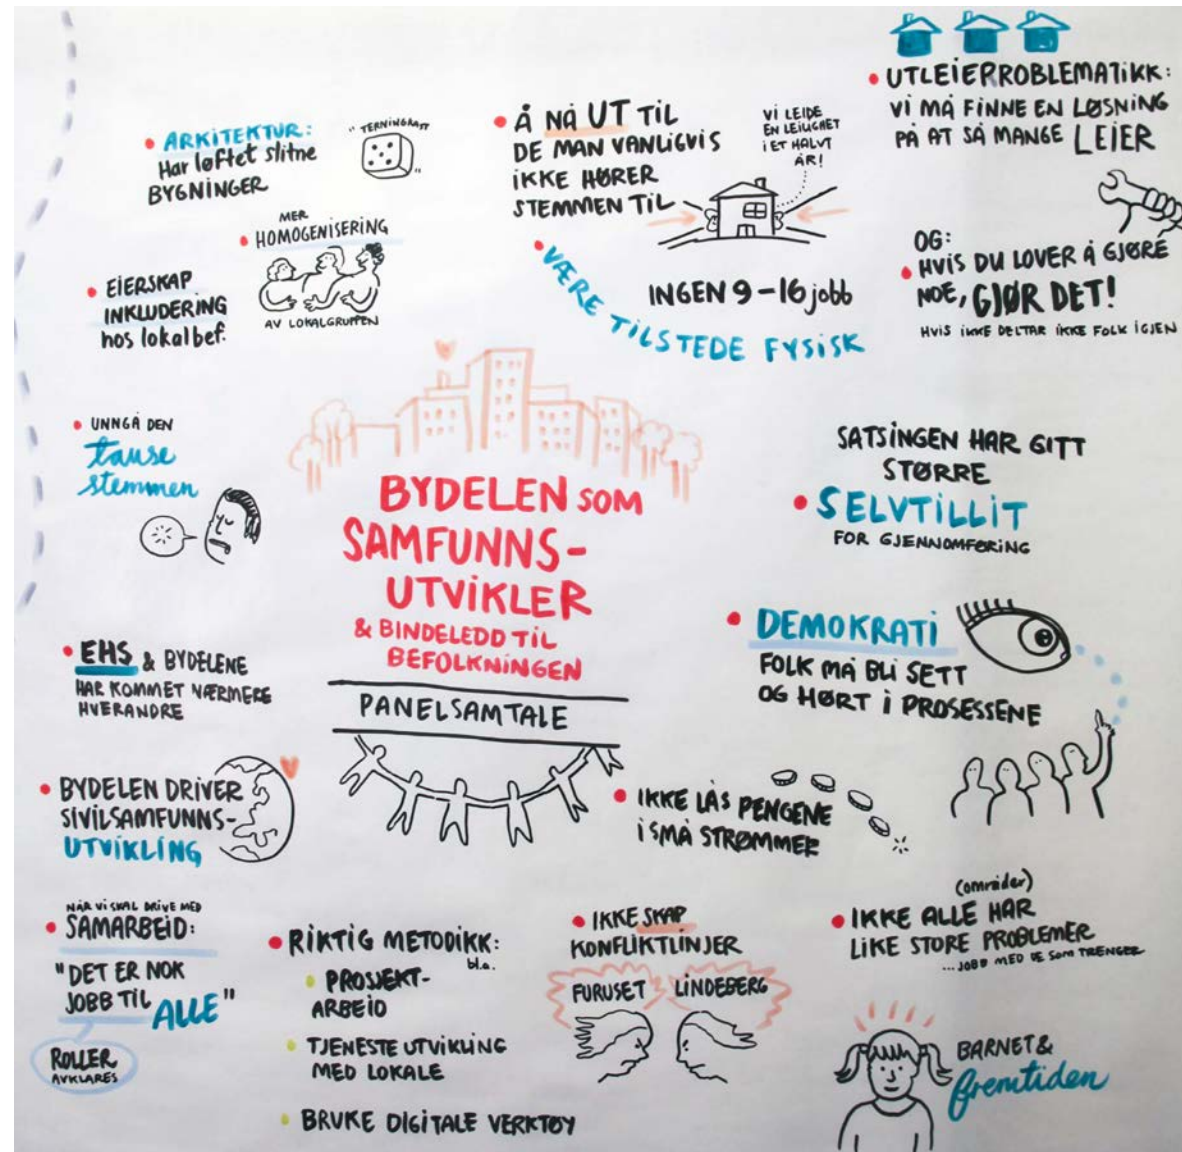 ARKITEKTUR:
Har løftet slitne
BYGNINGER
" TERNINGKAST
"
MER
HOMOGENISERING
AV LOKALGRUPPEN
EIERSKAP
INKLUDERING
hos lokalbef.
Å NÅ UT TIL
DE MAN VANLIGVIS
IKKE HØRER
STEMMEN TIL
VI LEIDE
EN LEILIGHET
I ET HALVT
ÅR!
VÆRE TILSTEDE FYSISK
INGEN 9-16 jobb
UTLEIEPROBLEMATIKK:
VI MÅ FINNE EN LØSNING
PÅ AT SÅ MANGE LEIER
OG:
HVIS DU LOVER Å GJØRE
NOE, GJØR DET!
HVIS IKKE DELTAR IKKE FOLK IGJEN
UNNGÅ DEN
tause
stemmen
BYDELEN SOM
SAMFUNNS-
UTVIKLER
& BINDELEDD TIL
BEFOLKNINGEN
PANELSAMTALE
SATSINGEN HAR GITT
STØRRE
SELVTILLIT
FOR GJENNOMFØRING
DEMOKRATI
FOLK MÅ BLI SETT
OG HØRT I PROSESSENE
EHS & BYDELENE
HAR KOMMET NÆRMERE
HVERANDRE
BYDELEN DRIVER
SIVILSAMFUNNS-
UTVIKLING
IKKE LÅS PENGENE
I SMÅ STRØMMER
NÅR VI SKAL DRIVE MED
SAMARBEID:
"DET ER NOK
JOBB TIL ALLE"
ROLLER
AVKLARES
RIKTIG METODIKK:
bl.a.
PROSJEKT-
ARBEID
TJENESTE UTVIKLING
MED LOKALE
BRUKE DIGITALE VERKTØY
IKKE SKAP
KONFLIKTLINJER
FURUSET
LINDEBERG
(områder)
IKKE ALLE HAR
LIKE STORE PROBLEMER
...JOBB MED DE SOM TRENGER
BARNET &
fremtiden